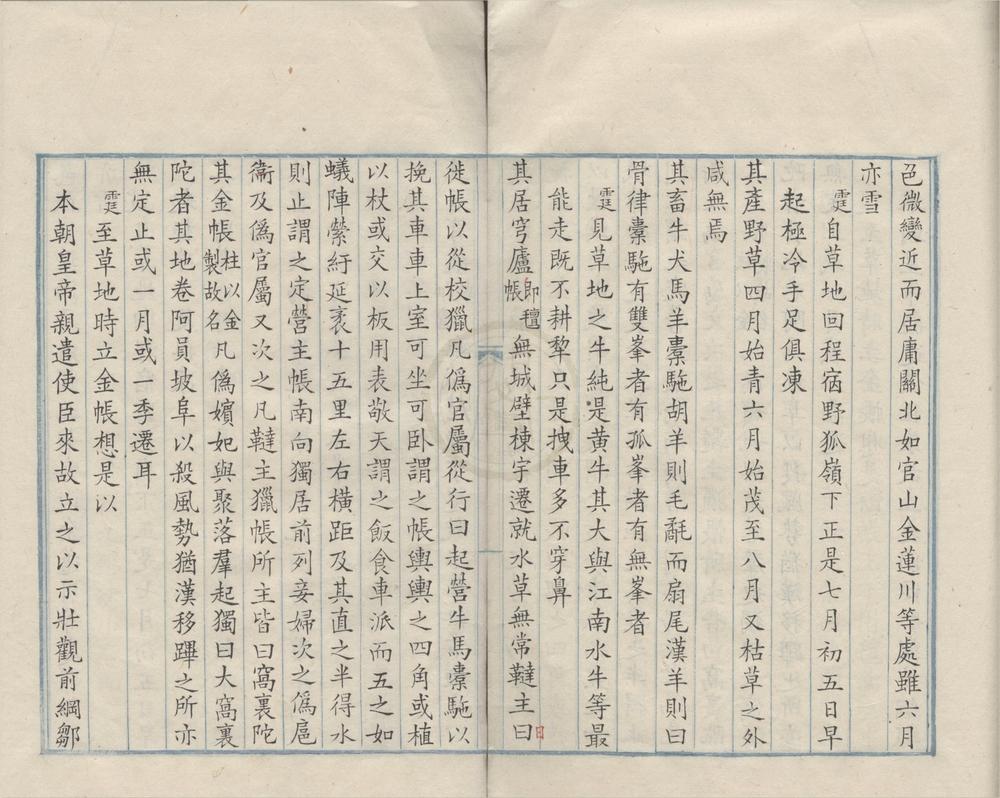 色微變近而居庸關北如官山金蓮川等處雖六月
亦雪
霆自草地回程宿野狐嶺下正是七月初五日早
起極冷手足俱凍
其產野草四月始青六月始茂至八月又枯草之外
咸無焉
其畜牛犬馬羊橐駞胡羊則毛氄而扇尾漢羊則曰
骨律橐駞有雙峯者有孤峯者有無峯者
霆見草地之牛純是黃牛其大與江南水牛等最
能走既不耕犂只是拽車多不穿鼻
其居穹廬即氊帳無城壁棟宇遷就水草無常韃主曰
徙帳以從校獵凡僞官屬從行曰起營牛馬橐駞以
挽其車車上室可坐可卧謂之帳輿輿之四角或植
以杖或交以板用表敬天謂之飯食車派而五之如
蟻陣縈紆延袤十五里左右橫距及其直之半得水
則止謂之定營主帳南向獨居前列妾婦次之僞扈
衞及僞官屬又次之凡韃主獵帳所主皆曰窩裏陀
其金帳柱以金製故名凡僞嬪妃與聚落羣起獨曰大窩裏
陀者其地卷阿員坡阜以殺風勢猶漢移蹕之所亦
無定止或一月或一季遷耳
霆至草地時立金帳想是以
本朝皇帝親遣使臣來故立之以示壯觀前綱鄒